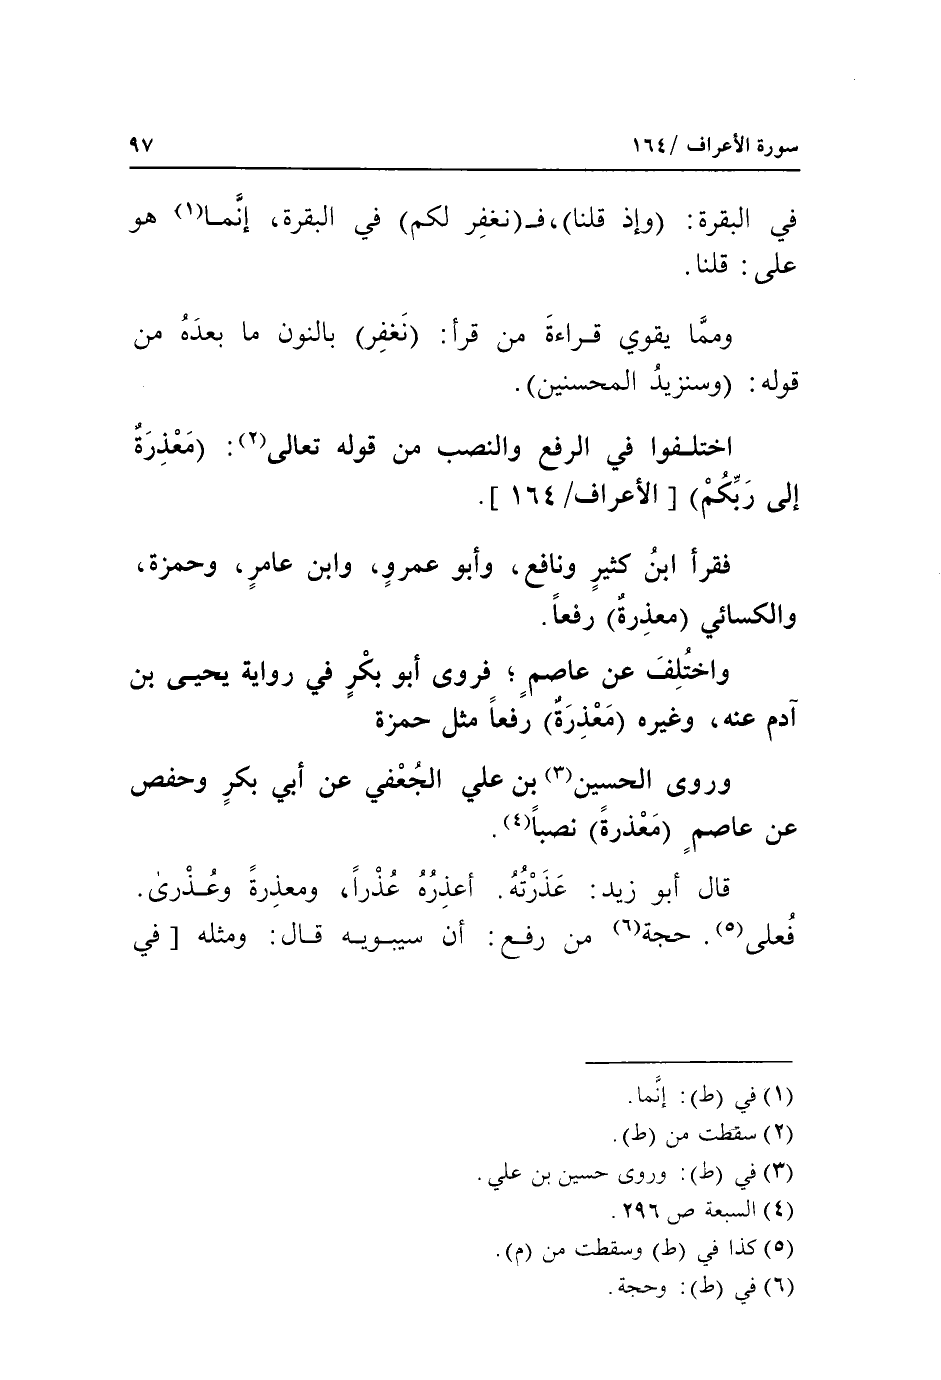 سورة الأعراف /١٦٤ ٩٧
في البقرة: (وإذ قلنا)، فـ(نغفِر لكم) في البقرة، إنَّمـا(١) هو
على: قلنا.
وممَّا يقوي قـراءةَ من قرأ: (نَغفِر) بالنون ما بعدَهُ من
قوله: (وسنزيدُ المحسنين).
اختلـفوا في الرفع والنصب من قوله تعالى(٢): (مَعْذِرَةٌ
إلى رَبِّكُمْ) [ الأعراف/ ١٦٤ ].
فقرأ ابنُ كثيرٍ ونافع، وأبو عمروٍ، وابن عامرٍ، وحمزة،
والكسائي (معذِرةٌ) رفعاً.
واختُلِفَ عن عاصمٍ؛ فروى أبو بكْرٍ في رواية يحيـى بن
آدم عنه، وغيره (مَعْذِرَةٌ) رفعاً مثل حمزة
وروى الحسين(٣) بن علي الجُعْفي عن أبي بكرٍ وحفص
عن عاصمٍ (مَعْذرةً) نصباً(٤).
قال أبو زيد: عَذَرْتُهُ. أعذِرُهُ عُذْراً، ومعذِرةً وعُـذْرىٰ.
فُعلى(٥). حجة(٦) من رفـع: أن سيبـويـه قـال: ومثله [ في
(١) في (ط): إنَّما.
(٢) سقطت من (ط).
(٣) في (ط): وروى حسين بن علي.
(٤) السبعة ص ٢٩٦.
(٥) كذا في (ط) وسقطت من (م).
(٦) في (ط): وحجة.